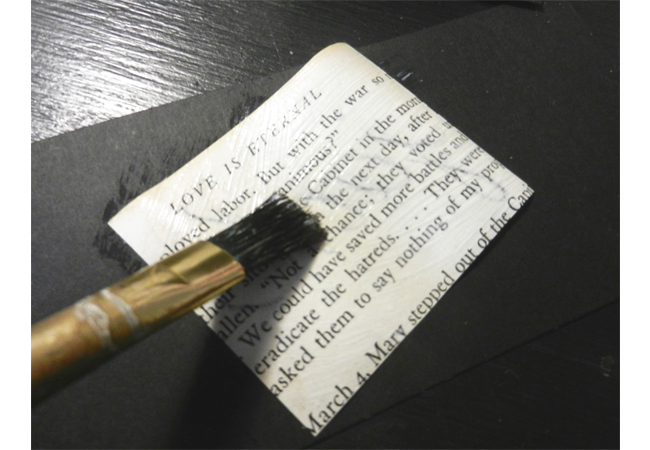 LOVE IS ETERNAL
labor. But with the war so
animous?"
Cabinet in the
the next day, after
"Not chance; they voted
We could have saved more battles and
eradicate the hatreds. . . . They were
asked them to say nothing of my
March 4, Mary stepped out of the